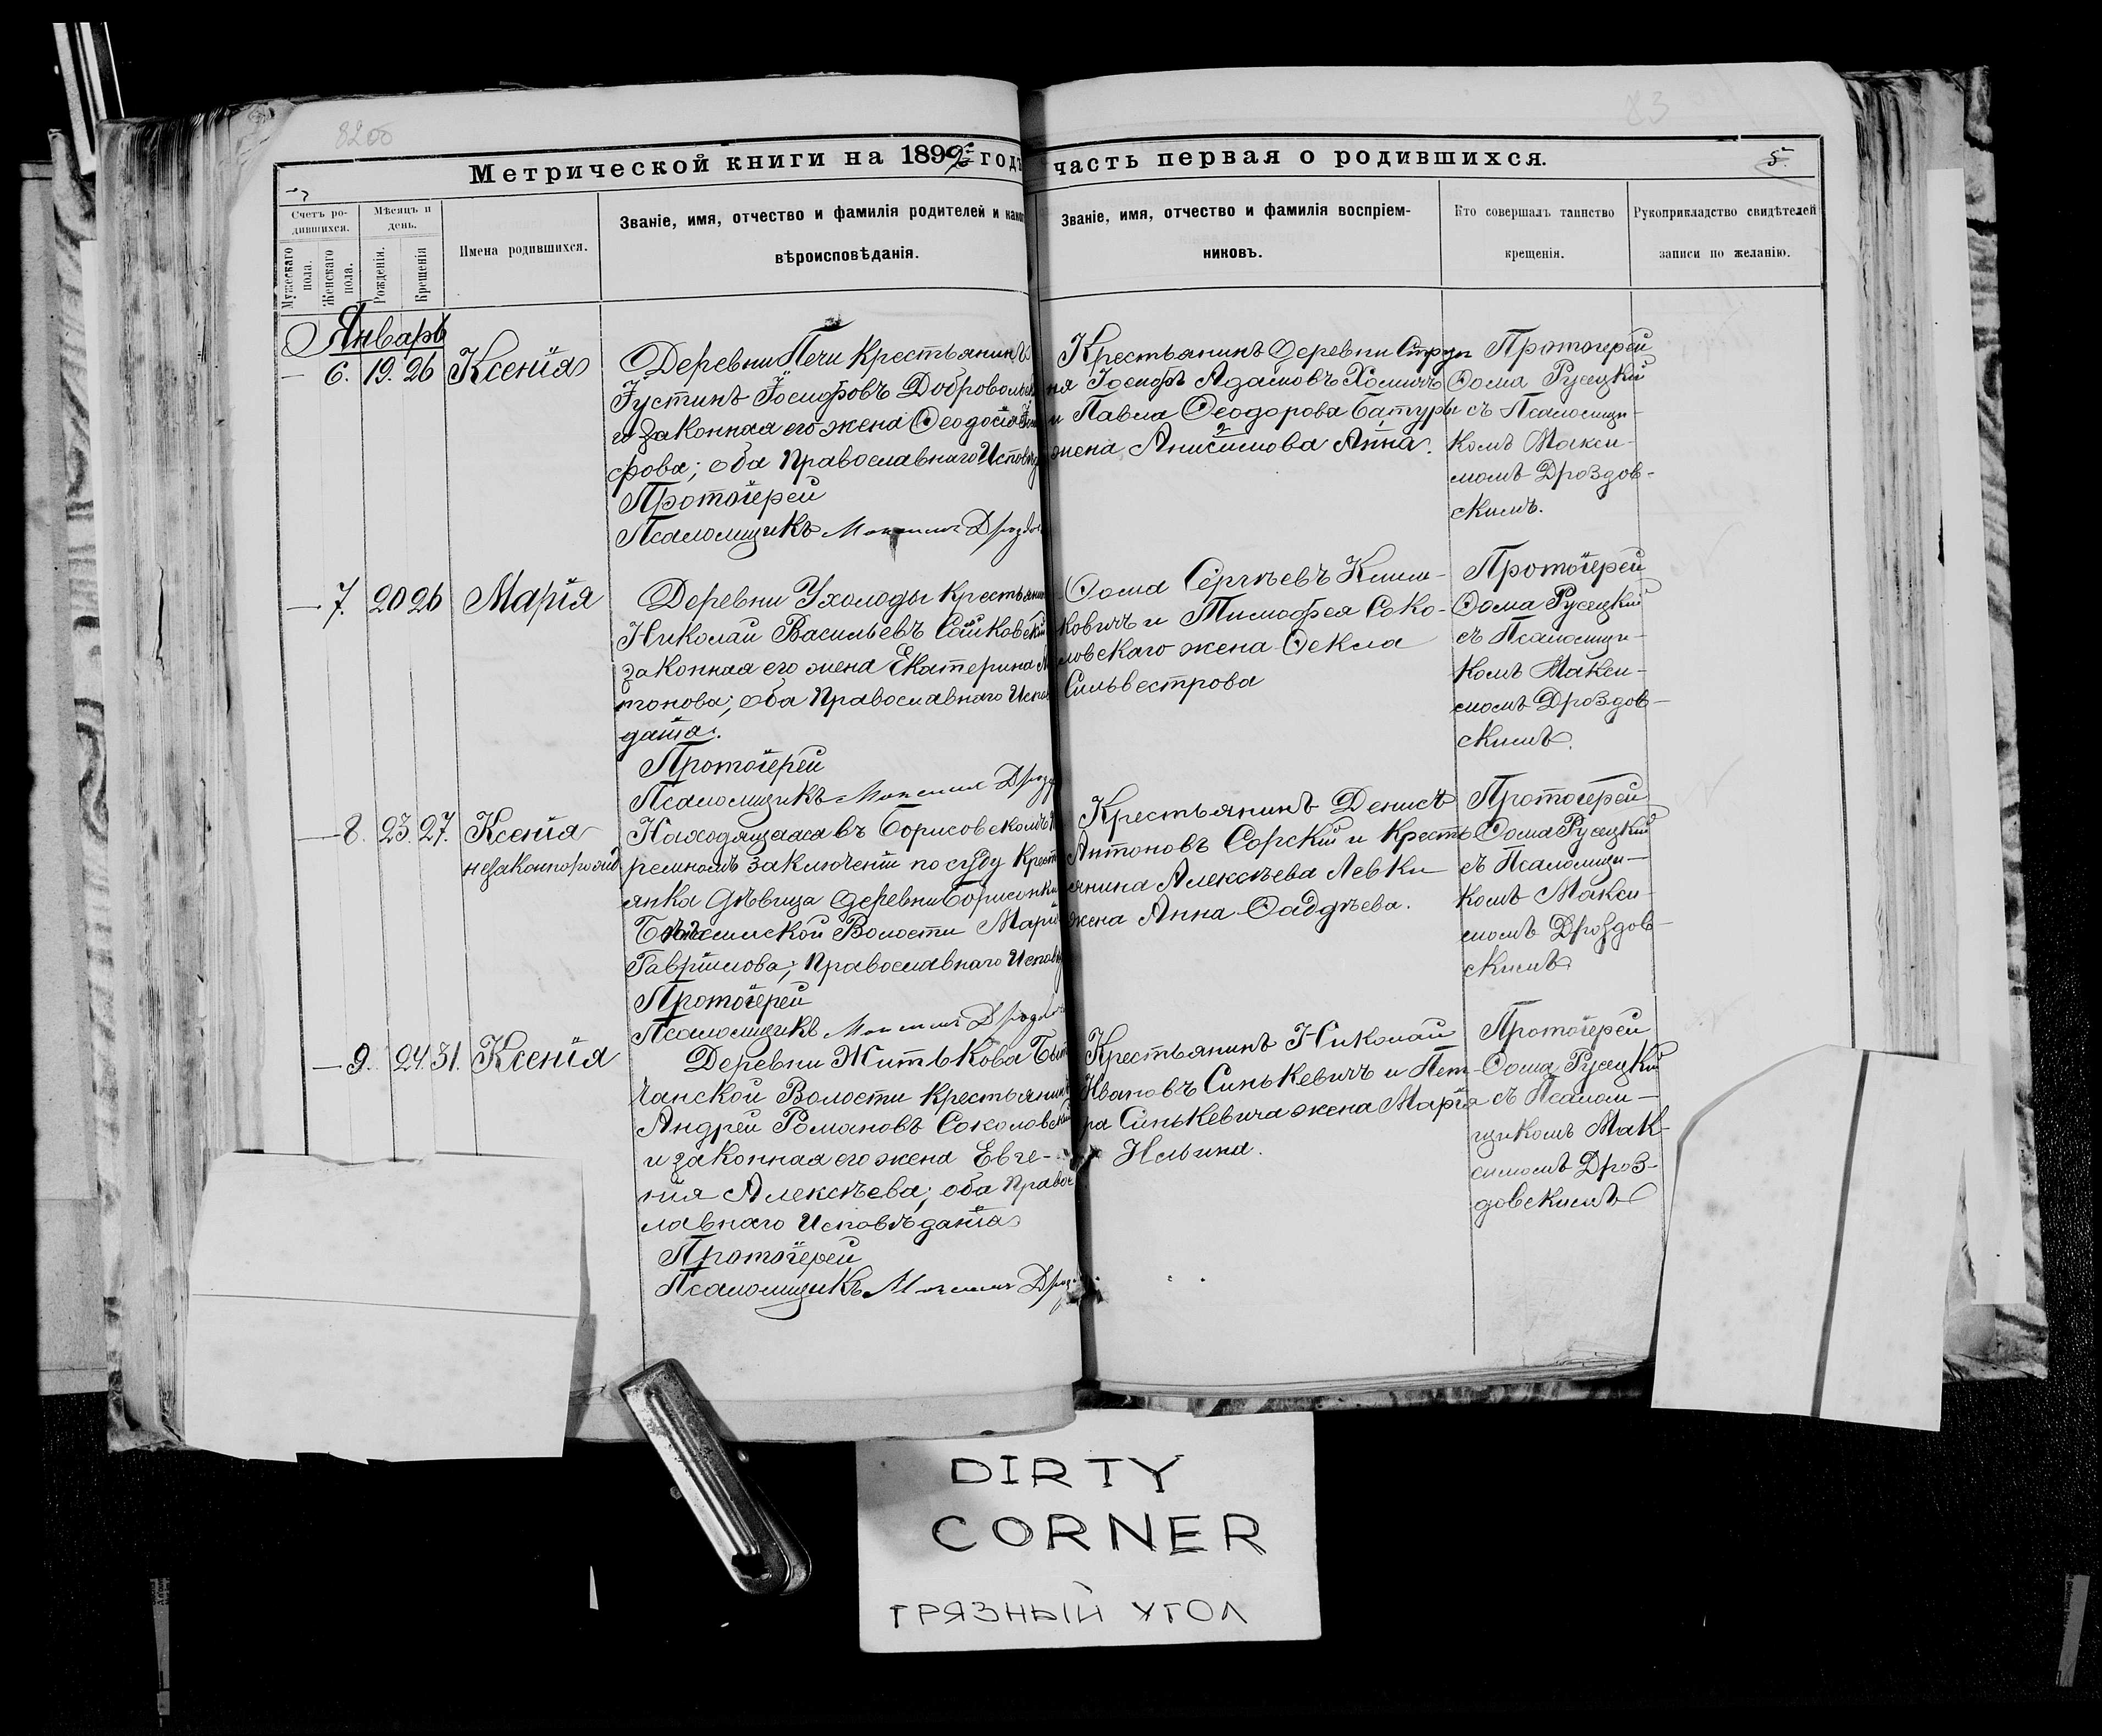 82об
83
Метрической книги на 1892 годъ
часть первая о родившихся.
5.
Счетъ ро-
дившихся.
Мѣсяцъ и
день.
Мужескаго
пола.
Женскаго
пола.
Рожденія.
Крещенія
Имена родившихся.
Званіе, имя, отчество и фамилія родителей и какого
вѣроисповѣданія.
Званіе, имя, отчество и фамилія воспріем-
никовъ.
Кто совершалъ таинство
крещенія.
Рукоприкладство свидѣтелей
записи по желанію.
Январь
— 6. 19. 26 Ксенія
Деревни Печи Крестьянинъ
Іустинъ Іосифовъ Доброволь
и законная его жена Ѳеодосія
фова; оба Православнаго Исповѣд
Протоіерей
Псаломщикъ Максимъ Дроздов
Крестьянинъ деревни Струп
ня Іосифъ Адамовъ Хомичъ
и Павла Ѳеодорова Батуры
жена Анисимова Анна.
Протоіерей
Ѳома Русецкій
съ Псаломщи-
комъ Макси-
момъ Дроздов-
скимъ.
— 7. 20 26 Марія
Деревни Ухолоды Крестьянин
Николай Васильевъ Сайковскій
законная его жена Екатерина
тонова; оба Православнаго Испов
данія.
Протоіерей
Псаломщикъ Максимъ Дрозд
Ѳома Сергѣевъ Клим-
ковичъ и Тимофея Соко-
ловскаго жена Ѳекла
Сильвестрова
Протоіерей
Ѳома Русецкій
съ Псаломщи-
комъ Макси-
момъ Дроздов-
скимъ.
— 8. 23. 27. Ксенія
незаконорожд
Находящаяся въ Борисовскомъ
ремномъ заключеніи по суду Крест
янка дѣвица деревни Борисовки
Волости Марія
Гавріилова; Православнаго Исповѣд
Протоіерей
Псаломщикъ Максимъ Дроздов
Крестьянинъ Денисъ
Антоновъ Сорскій и Кресть
янина Алексѣева Левки
жена Анна Ѳаддѣева.
Протоіерей
Ѳома Русецкій
съ Псаломщи-
комъ Макси-
момъ Дроздов-
скимъ
— 9. 24. 31. Ксенія
Деревни Житькова Быт
чанской Волости Крестьянинъ
Андрей Романовъ Соколовскій
и законная его жена Евге-
нія Алексѣева; оба Правос
лавнаго Исповѣданія
Протоіерей
Псаломщикъ Максимъ Дрозд
Крестьянинъ Николай
Ивановъ Синькевичъ и Пет-
ра Синькевича жена Марія
Ильина.
Протоіерей
Ѳома Русецкій
съ Псалом-
щикомъ Мак-
симомъ Дроз-
довскимъ
DIRTY
CORNER
ГРЯЗНЫЙ УГОЛ